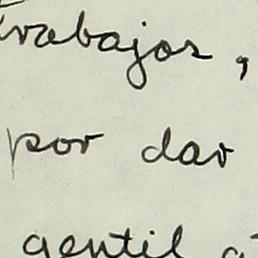 trabajos,
por dar
gentil a